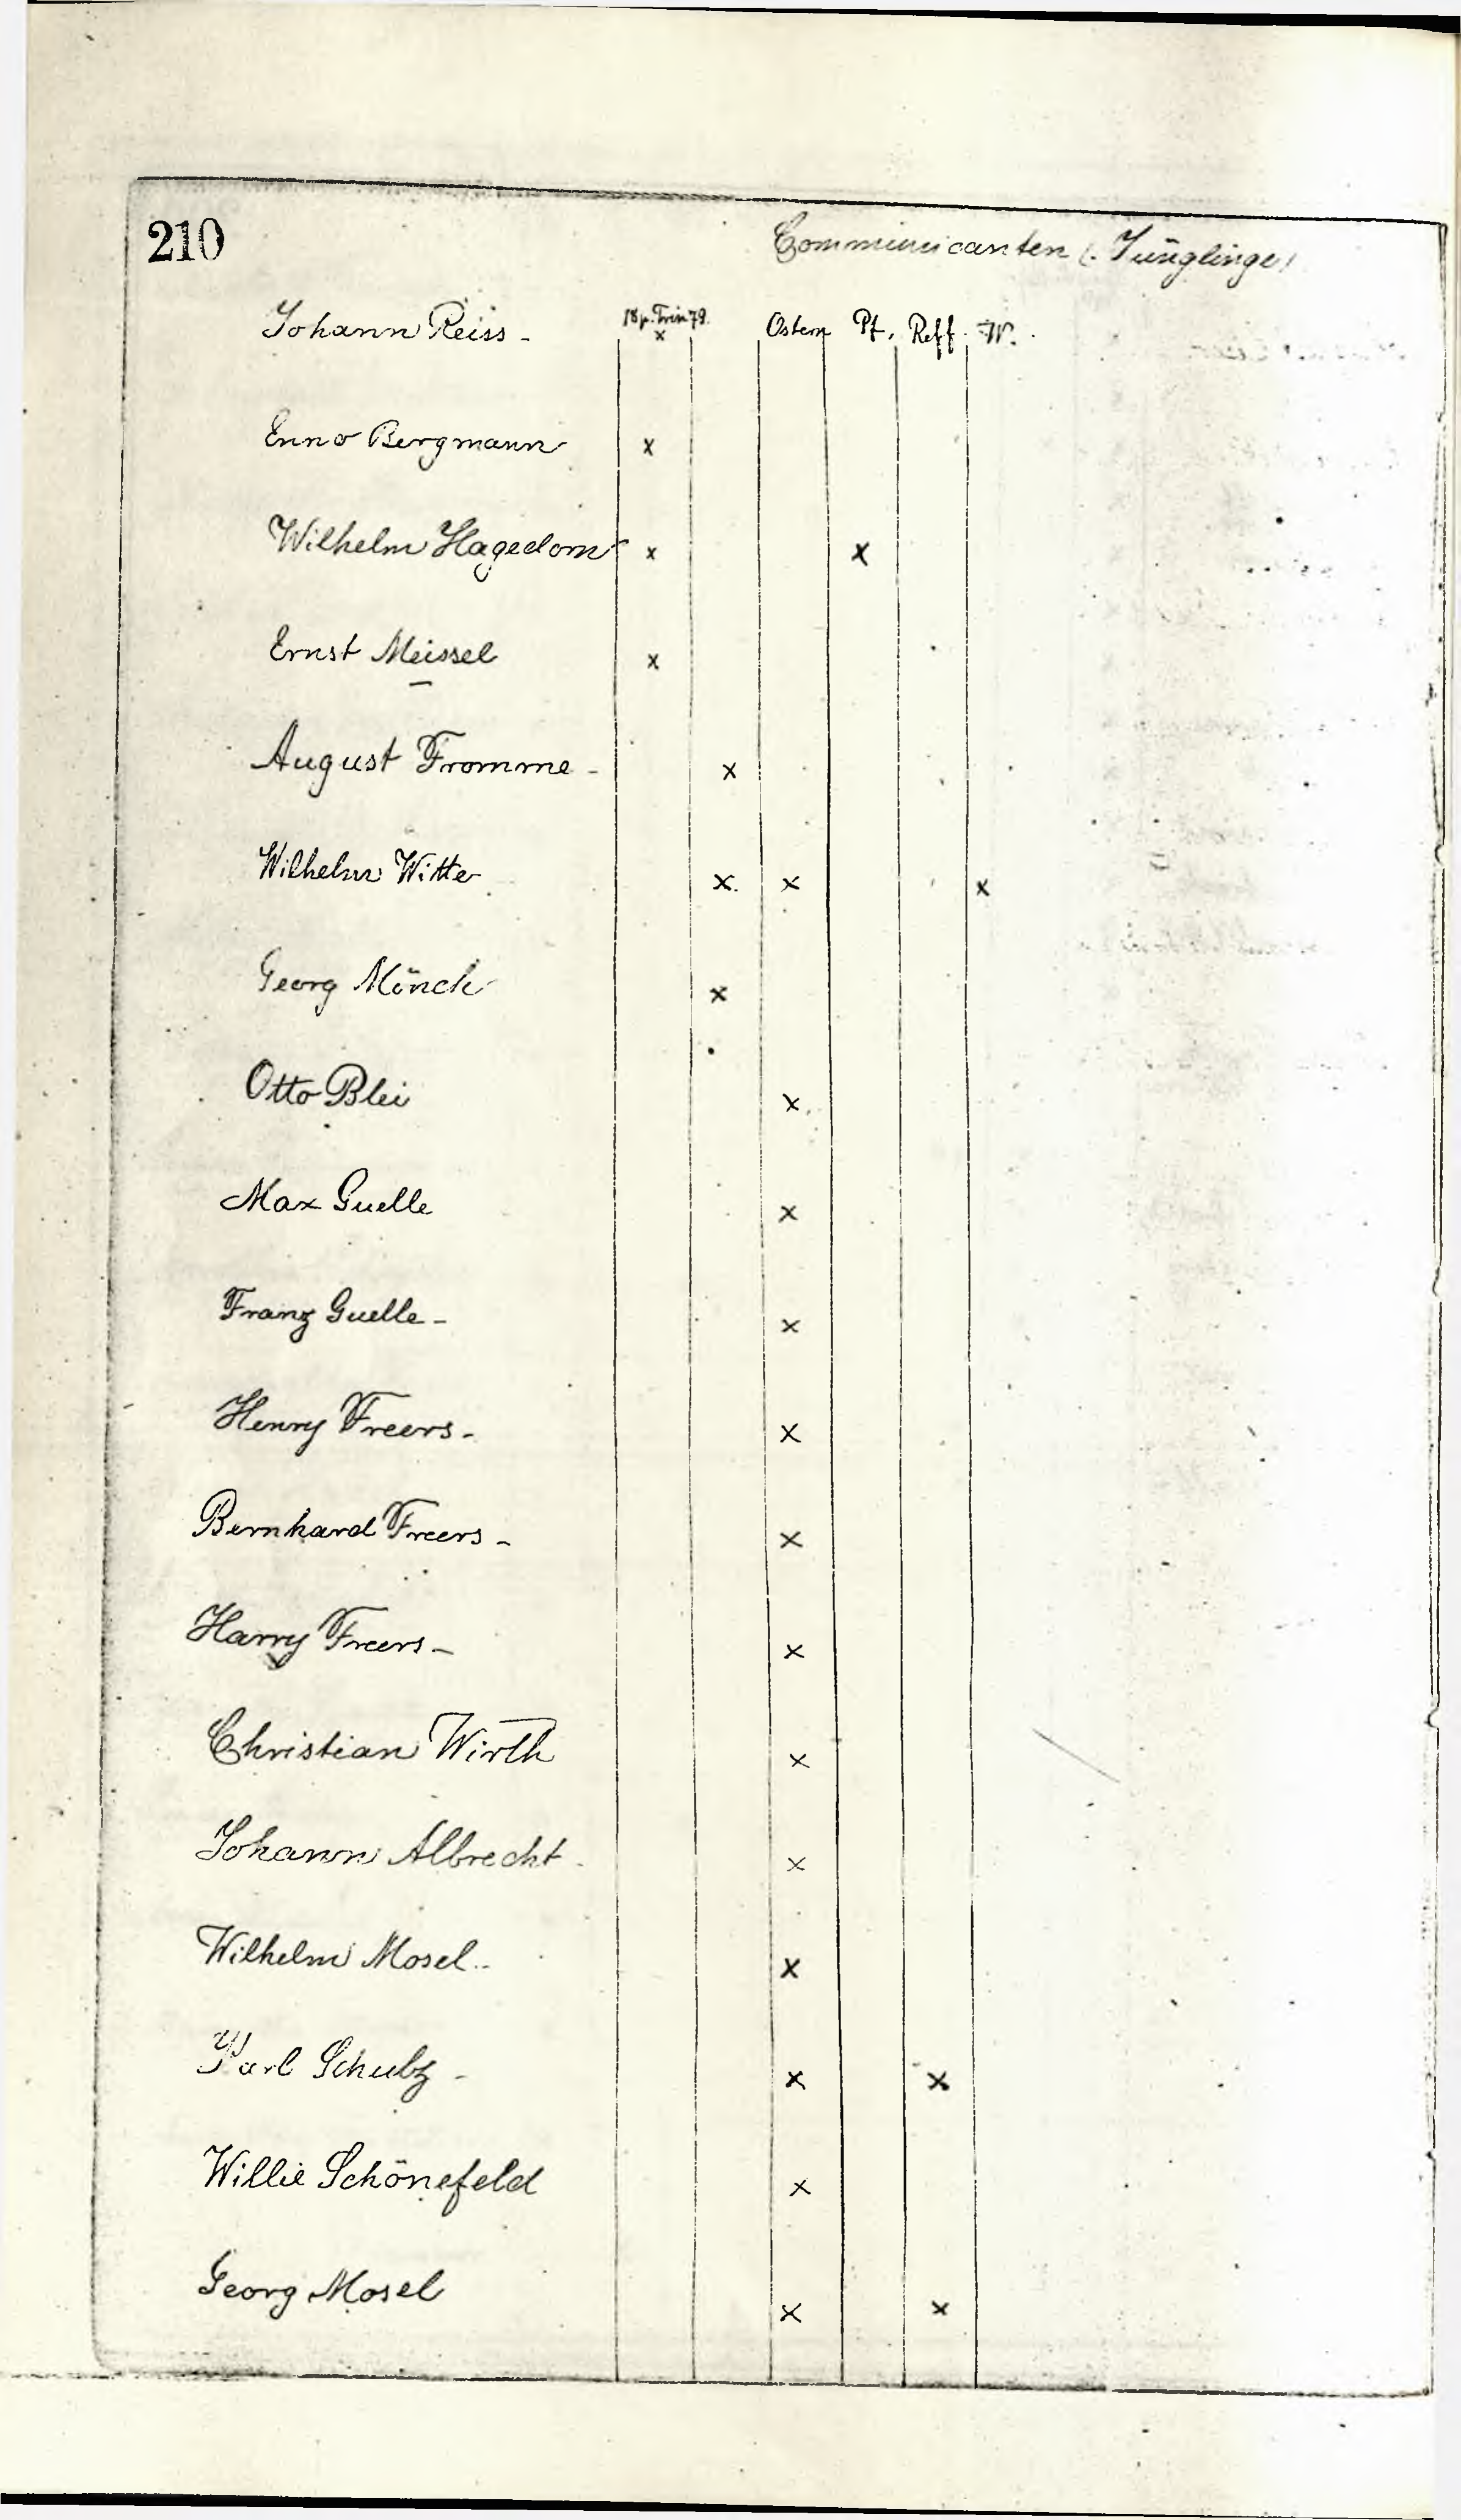 210
Communicanten (: Jünglinge)
Johann Reiss - 18 p. Trin 79. Ostern Pf. Reff. W.
x
Enno Bergmann x
Wilhelm Hagedorn x x
Ernst Meissel x
August Fromme - x
Wilhelm Witte x. x x
Georg Mönch x
Otto Blei x
Max Guelle x
Franz Guelle - x
Henry Freers - x
Bernhard Freers - x
Harry Freers - x
Christian Wirth x
Johann Albrecht x
Wilhelm Mosel x
Karl Schulz - x x
Willie Schönefeld x
Georg Mosel x x